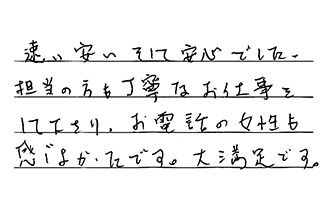 速い 安い そして安心でした。
担当の方も丁寧なお仕事を
して下さり、お電話の女性も
感じよかったです。大満足です。